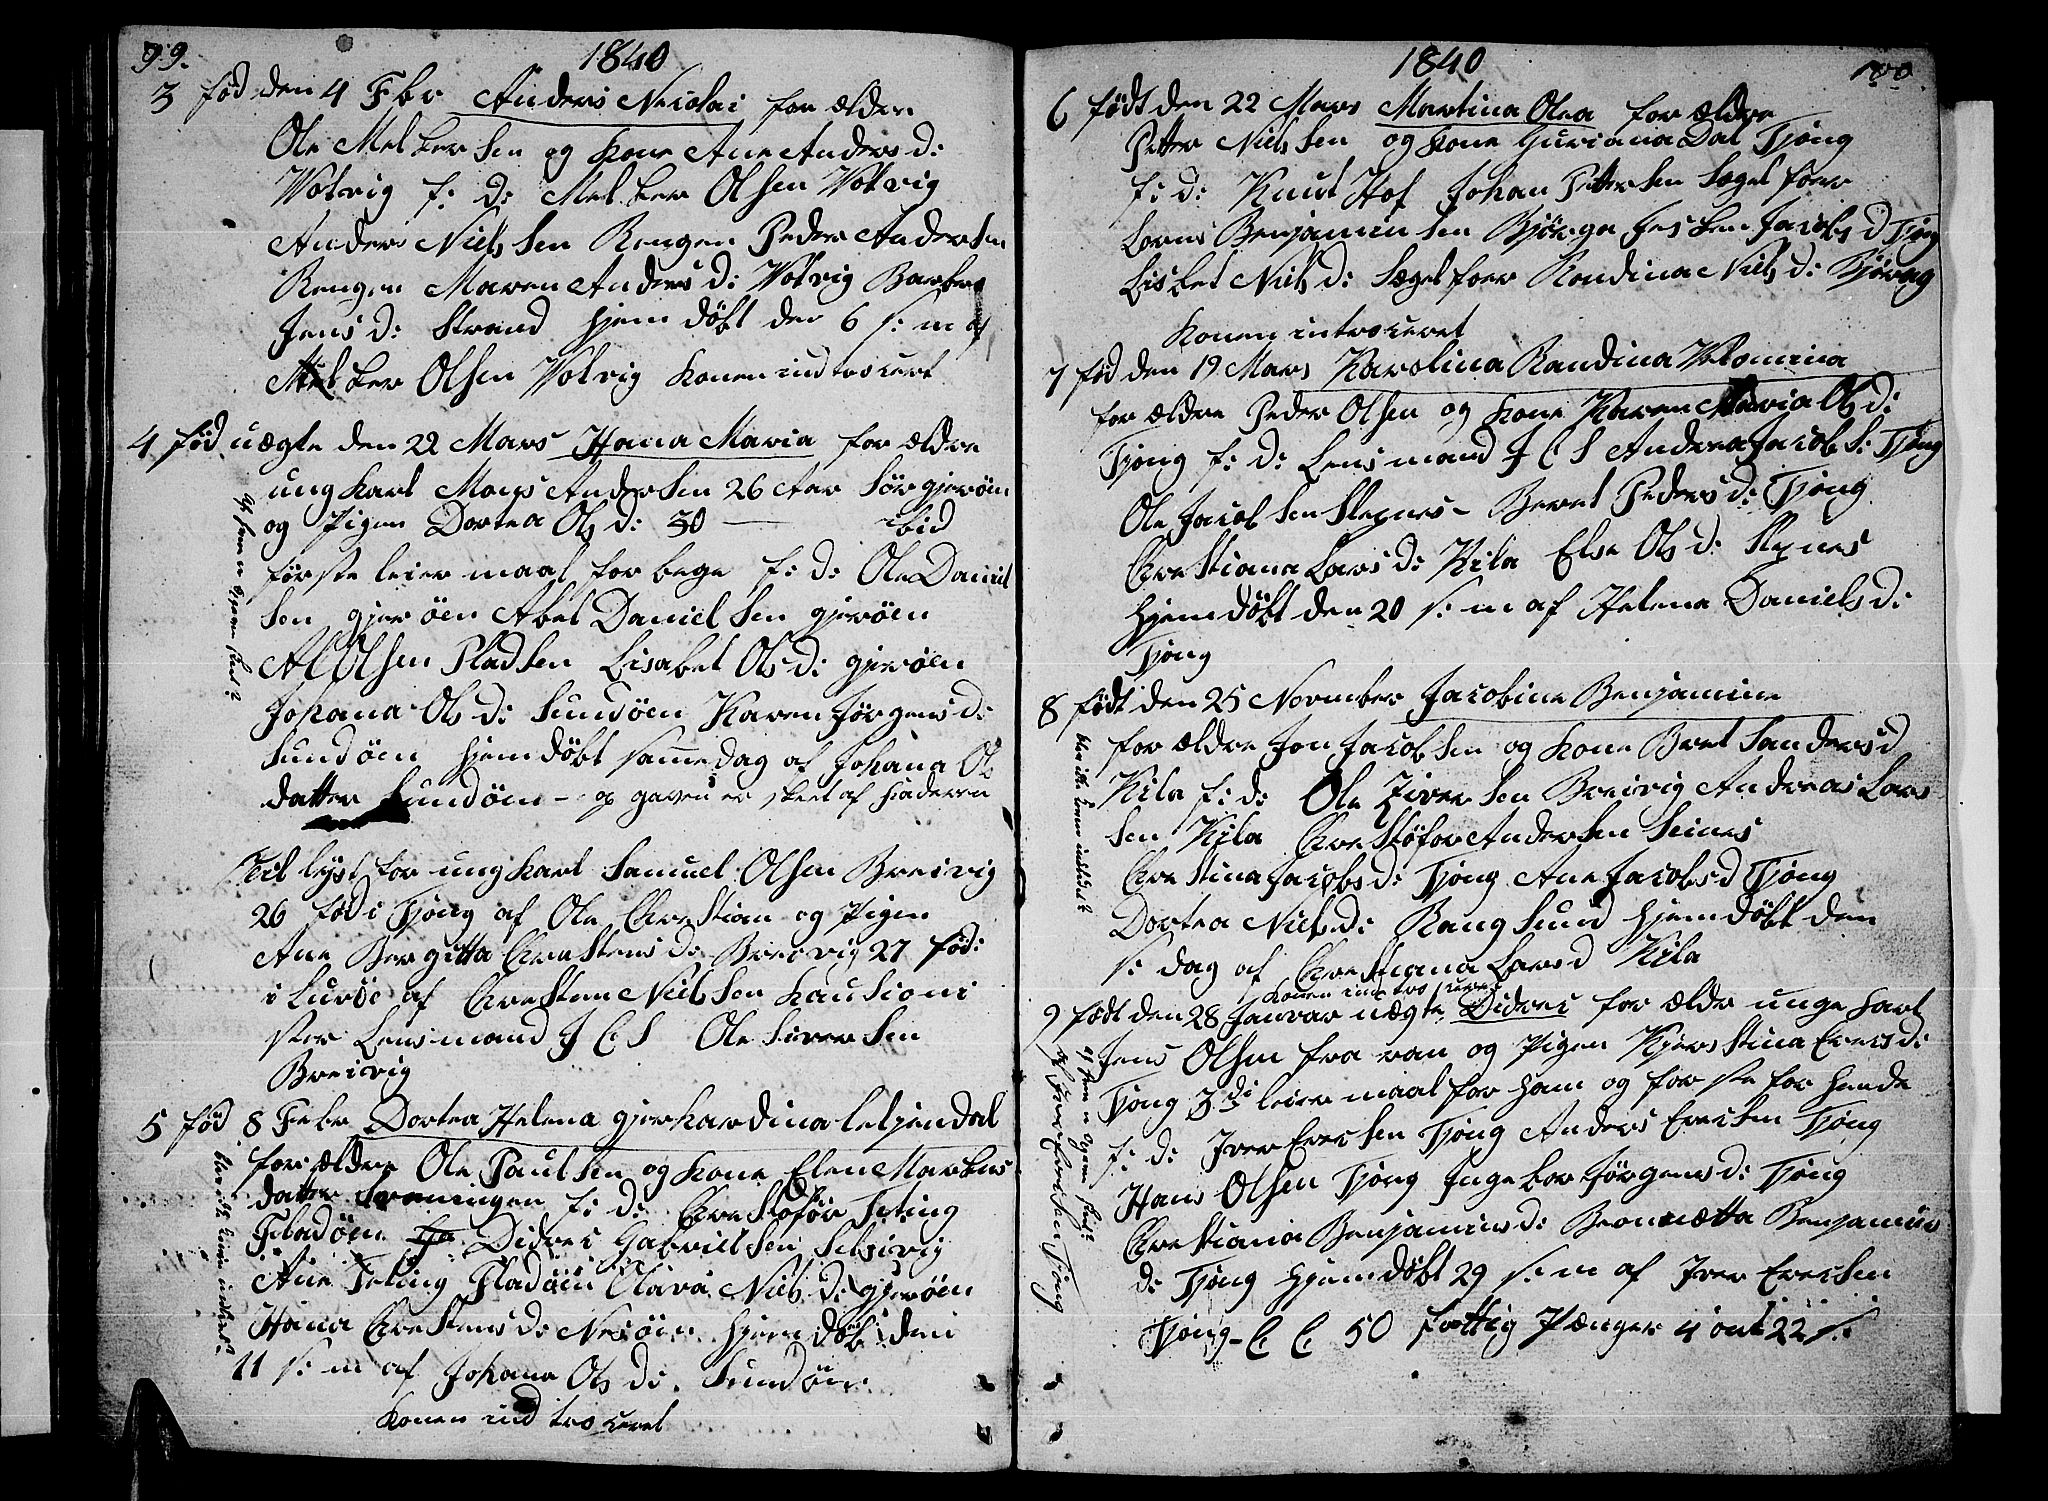 99.
1840
3 fød den 4 Fbr Anders Nicolai for ælder
Ole Melkersen og Kone Ane Andersd:
Votvig f: d: Melker Olsen Votvig
Anders Nielssen Rengen Peder Andersen
Rengen Maren Andersd: Votvig Barbro
Jensd: Strand hjemdøbt den 6 s: m af
Melker Olsen Votvig Konen introcert
4 fød uægte den 22 Mars Hana Maria for ældre
ungkarl Mons Andersen 26 Aar Sørgjerøen
og Pigen Dortea Olsd: 30 — ibid
første leiermaal for bege f: d: Ole Daniel
sen gjerøen Abel Danielsen gjerøen
Al Olsen Pladsen Lisabet Olsd: gjerøen
Johana Olsd: Sundøen Karen Jørgensd:
Sundøen hjemdøbt samedag af Johana Ols
datter Sundøen - opgaven er skeet af Faderen
Til lyst for ungkarl Samuel Olsen Breivig
26 fød i Tjong af Ole Chrestian og Pigen
Ane Bergitta Chrestensd: Breivig 27 fød:
i Lurøe af Chresten Nielssen Kautioni
ster Lensmand J C S Ole Siversen
Breivig
5 fød 8 Febr Dortea Helena gjerhardina
for ældre Ole Paulsen og Kone Elen Markus
datter f: d: Chrestofør Feting
Fladøen Didrec Gabrielsen Selsvig
Ane Feting Fladøen Clara Nielsd: gjerøen
Hana Chrestensd: Nesøen hjemdøbt den
11 s: m af Johana Olsd: Sundøen
Konen introceret
1840
100
6 født den 22 Mars Martina Olea for ældre
Petter Nielssen og Kone Guriana Dal Tjong
f: d: Knut Hof Johan Pettersen Sægelfoer
Lorns Benjaminsen Bjørge Jacobsd Tjong
Lisbet Nielsd: Sægelfoer Rondina Nielsd:
Konen introceret
7 fød den 19 Mars Karolina Randina
for ældre Peder Olsen og Kone Karen Maria Olsd:
Tjong f: d: Lensmand J C S Andrea Jacobs: Tjong
Ole Jacobsen Slepnes - Beret Pedersd: Tjong
Chrestiana Larsd: Kila Else Olsd:
hjemdøbt den 20 s: m af Helena Danielsd:
Tjong
8 født den 25 November Jacobine Benjamine
for ældre Jon Jacobsen og Kone Bret Sandersd
Kila f: d: Ole Ziversen Breivig Andreas Lars
sen Kila Chrestøfor Andersen Seines
Chrestina Jacobsd: Tjong Ane Jacobsd Tjong
Dortea Nielsd: Rangsund hjemdøbt den
s: dag af Chrestiana Larsd Kila
Konen introceret
9 født den 28 Janvar uægte Didrec for ældre unge Karl
Jens Olsen fra ran og Pigen Kjerstina Erecsd:
Tjong 3die leiermaal for ham og første for hende
f: d: Iver Erecsen Tjong Anders Erecsen Tjong
Hans Olsen Tjong Ingebor Jørgensd: Tjong
Chrestiana Benjaminsd: Benjamins
d: Tjong hjemdøbt 29 s: m af Iver Erecsen
Tjong - C C 50 fattig Pænger 4 ort 22 s: